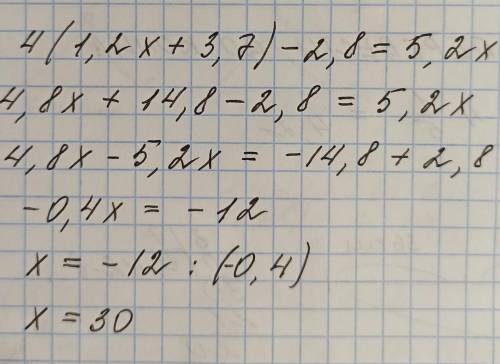 4(1,2x + 3,7) - 2,8 = 5,2x
4,8x + 14,8 - 2,8 = 5,2x
4,8x - 5,2x = -14,8 + 2,8
-0,4x = -12
x = -12 : (-0,4)
x = 30